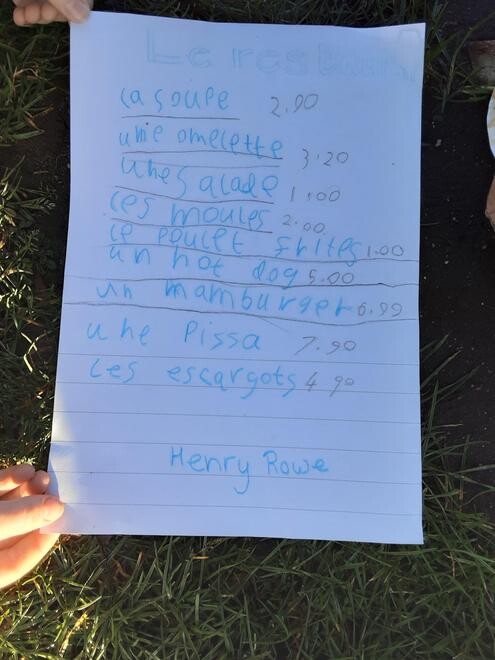 Le restaurant
la soupe 2.90
une omelette 3.20
une salade 1.00
les moules 2.00
le poulet frites 1.00
un hot dog 5.00
un mamburger 6.99
une Pissa 7.90
les escargots 4.90
Henry Rowe